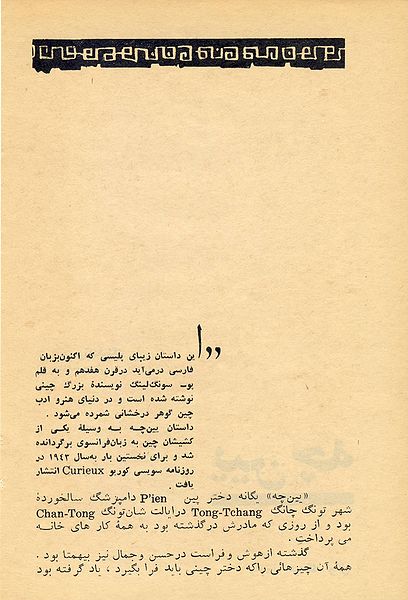 «این داستان زیبای پلیسی که اکنون‌بزبان
فارسی درمی‌آید درقرن هفدهم و به قلم
پوـ سونگ‌لینگ نویسندهٔ بزرگ چینی
نوشته شده است و در دنیای هنرو ادب
چین گوهر درخشانی شمرده می‌شود .
داستان یین‌چه به وسیلهٔ یکی از
کشیشان چین به زبان‌فرانسوی برگردانده
شد و برای نخستین بار به‌سال ۱۹۴۳ در
روزنامه سویسی کوریو Curieux انتشار
یافت .
«یین‌چه» یگانه دختر پین P'ien دامپزشگ سالخوردهٔ
شهر تونگ چانگ Tong-Tchang درایالت شان‌تونگ Chan-Tong
بود و از روزی که مادرش درگذشته بود به همهٔ کار های خانــه
می پرداخت .
گذشته ازهوش و فراست درحسن وجمال نیز بیهمتا بود .
همهٔ آن چیزهائی راکه دختر چینی باید فرا بگیرد ، یاد گرفته بود